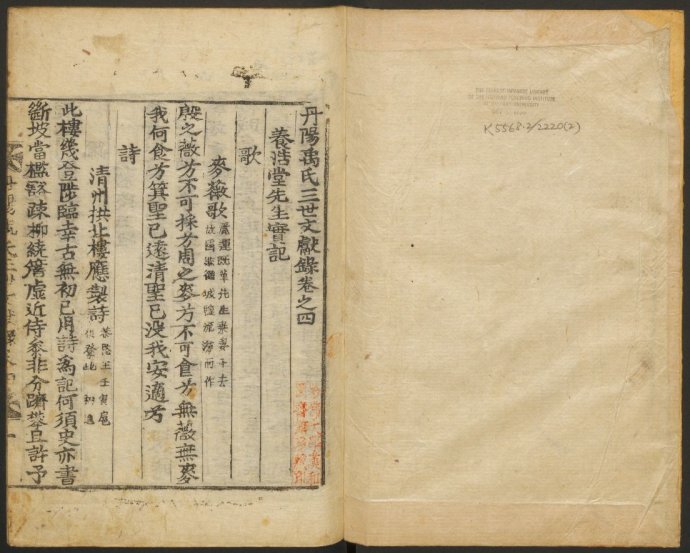 丹陽禹氏三世文獻錄卷之四
養浩堂先生實記
歌
麥薇歌
殷之薇兮不可採兮周之麥兮不可食兮無薇無麥
我何食兮箕聖已遠清聖已沒我安適兮
詩
清州拱北樓應製詩
此樓幾登陟臨幸古無初已用詩爲記何須史亦書
斷坡當檻豁疎柳繞簷虛近侍叅非分躋攀且許予
K5568.2/2220(2)